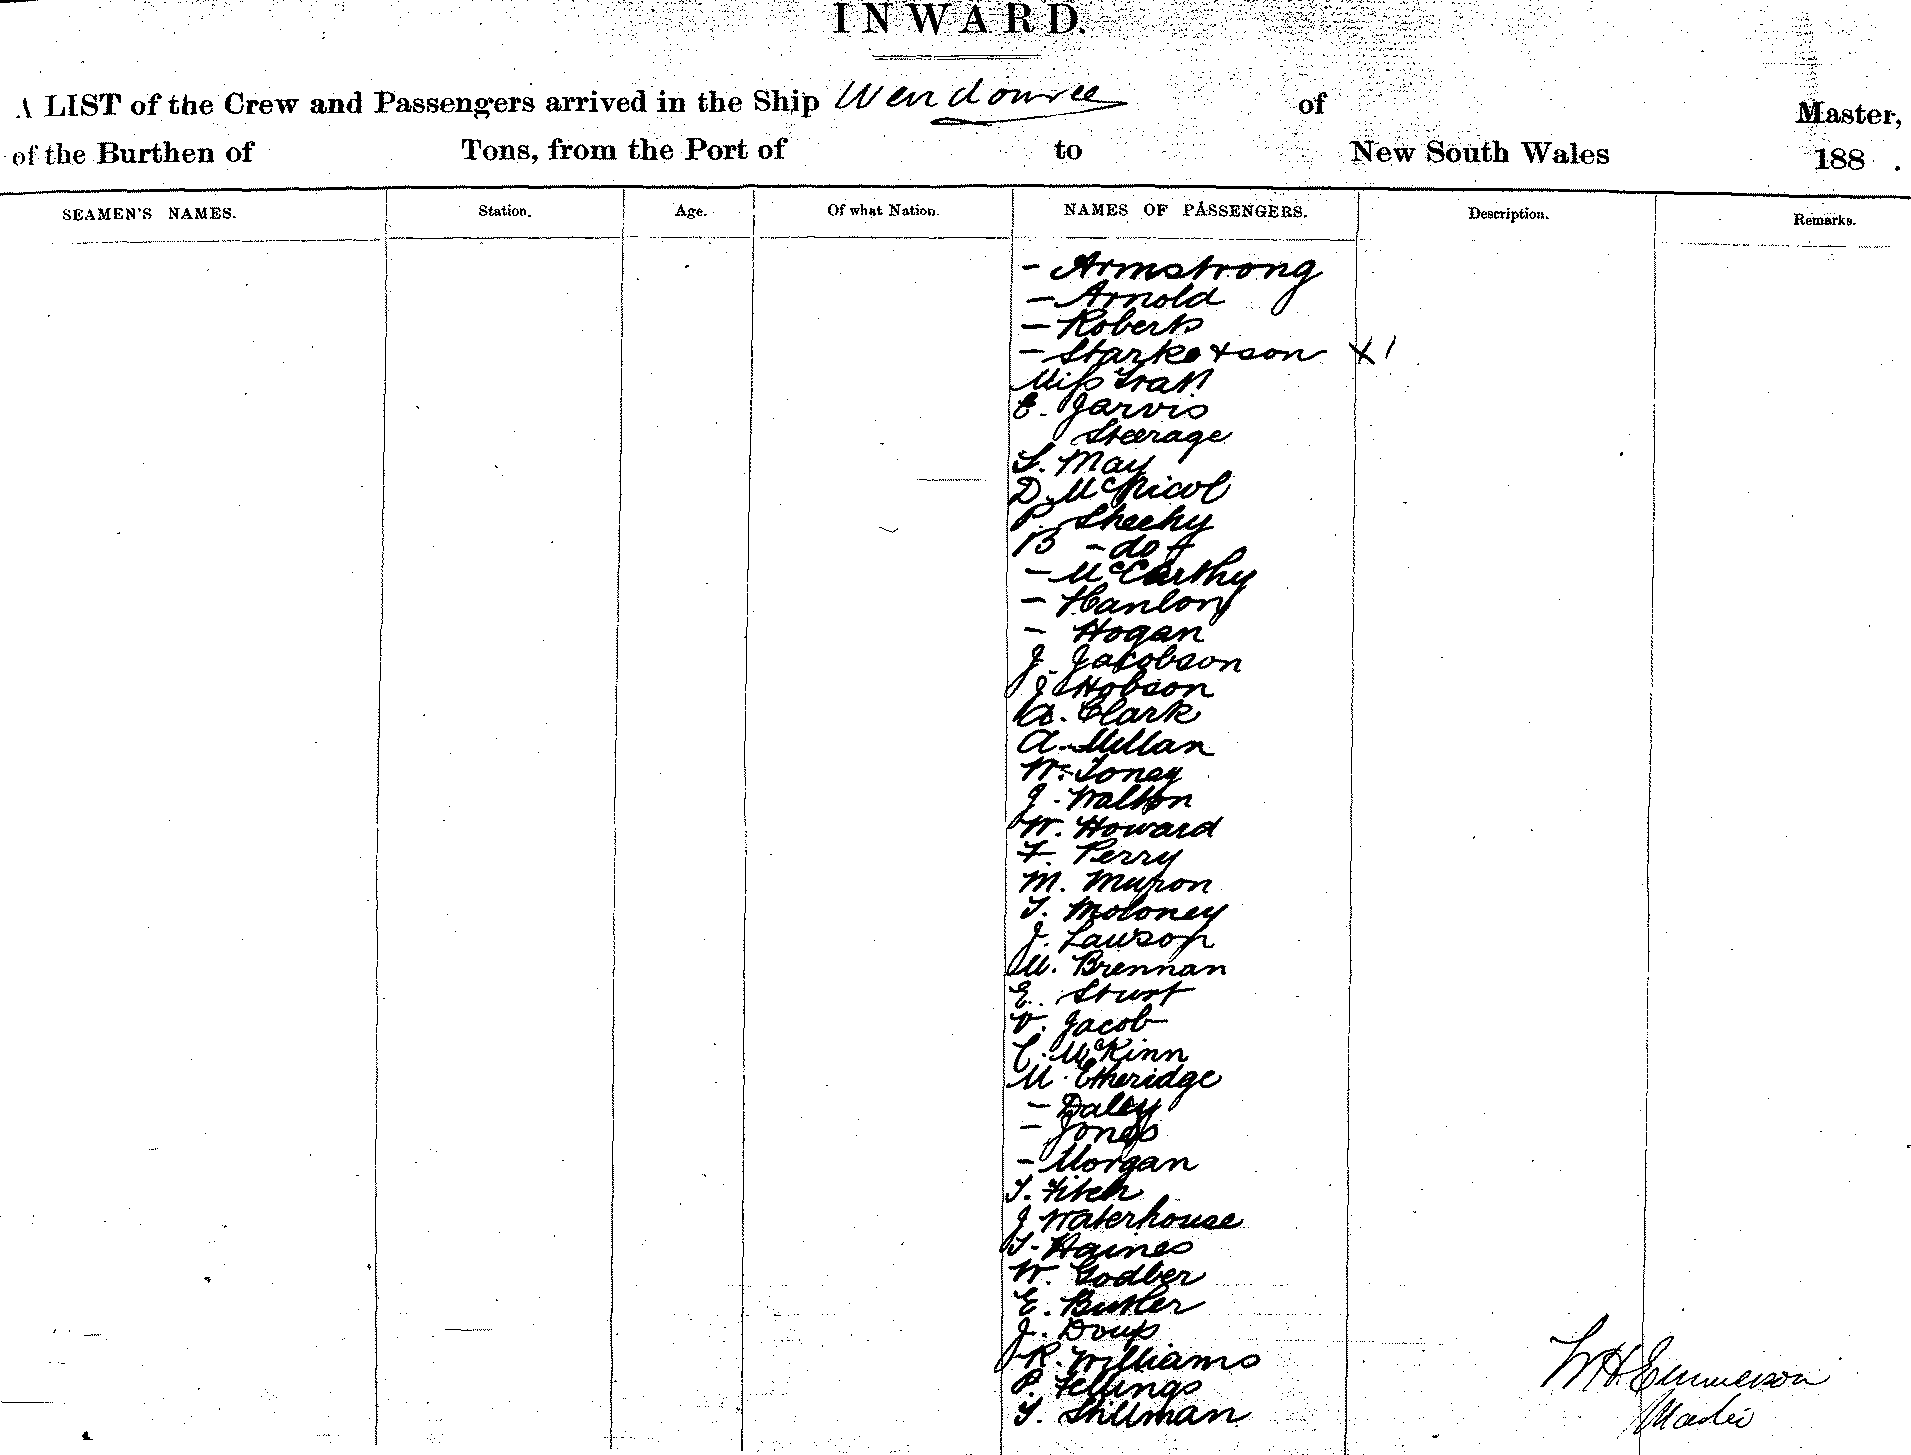 INWARD.
A LIST of the Crew and Passengers arrived in the Ship Wendouree of Master,
of the Burthen of Tons, from the Port of to New South Wales 188 .
SEAMEN'S NAMES. Station. Age. Of what Nation. NAMES OF PASSENGERS. Description. Remarks.
- Armstrong
- Arnold
- Roberts
- Starke + son X 1
Miss
E. Jarvis
Steerage
S. May
D. McNicol
P. Sheehy
B - do -
- McCarthy
- Hanlon
- Hogan
J. Jacobson
J Hobson
A. Clark
A. Millan
W. Toney
J. Walton
W. Howard
F. Perry
M. Muron
T. Moloney
J. Lawson
M. Brennan
E. Sturt
V. Jacob
C. McKinn
M. Etheridge
- Daley
- Jones
- Morgan
T. Fitch
J Waterhouse
T. Haines
W. Godber
E. Butler
J. Doup
R. Williams
P. Fellings
T. Stillman
WH Emmerson
Master